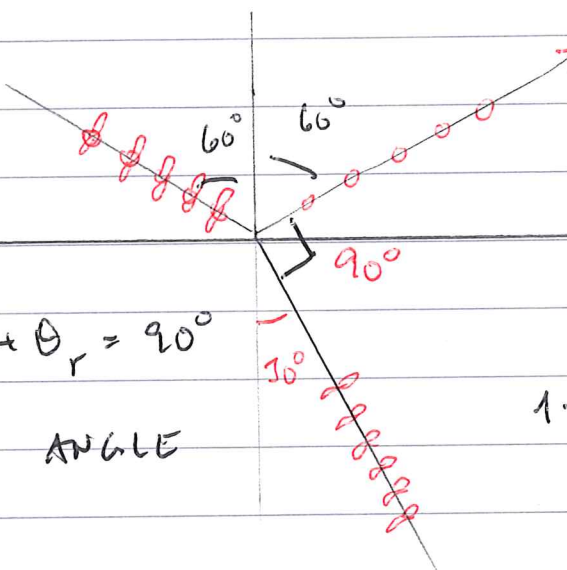 60°
60°
90°
+ θr = 90°
30°
1.
ANGLE